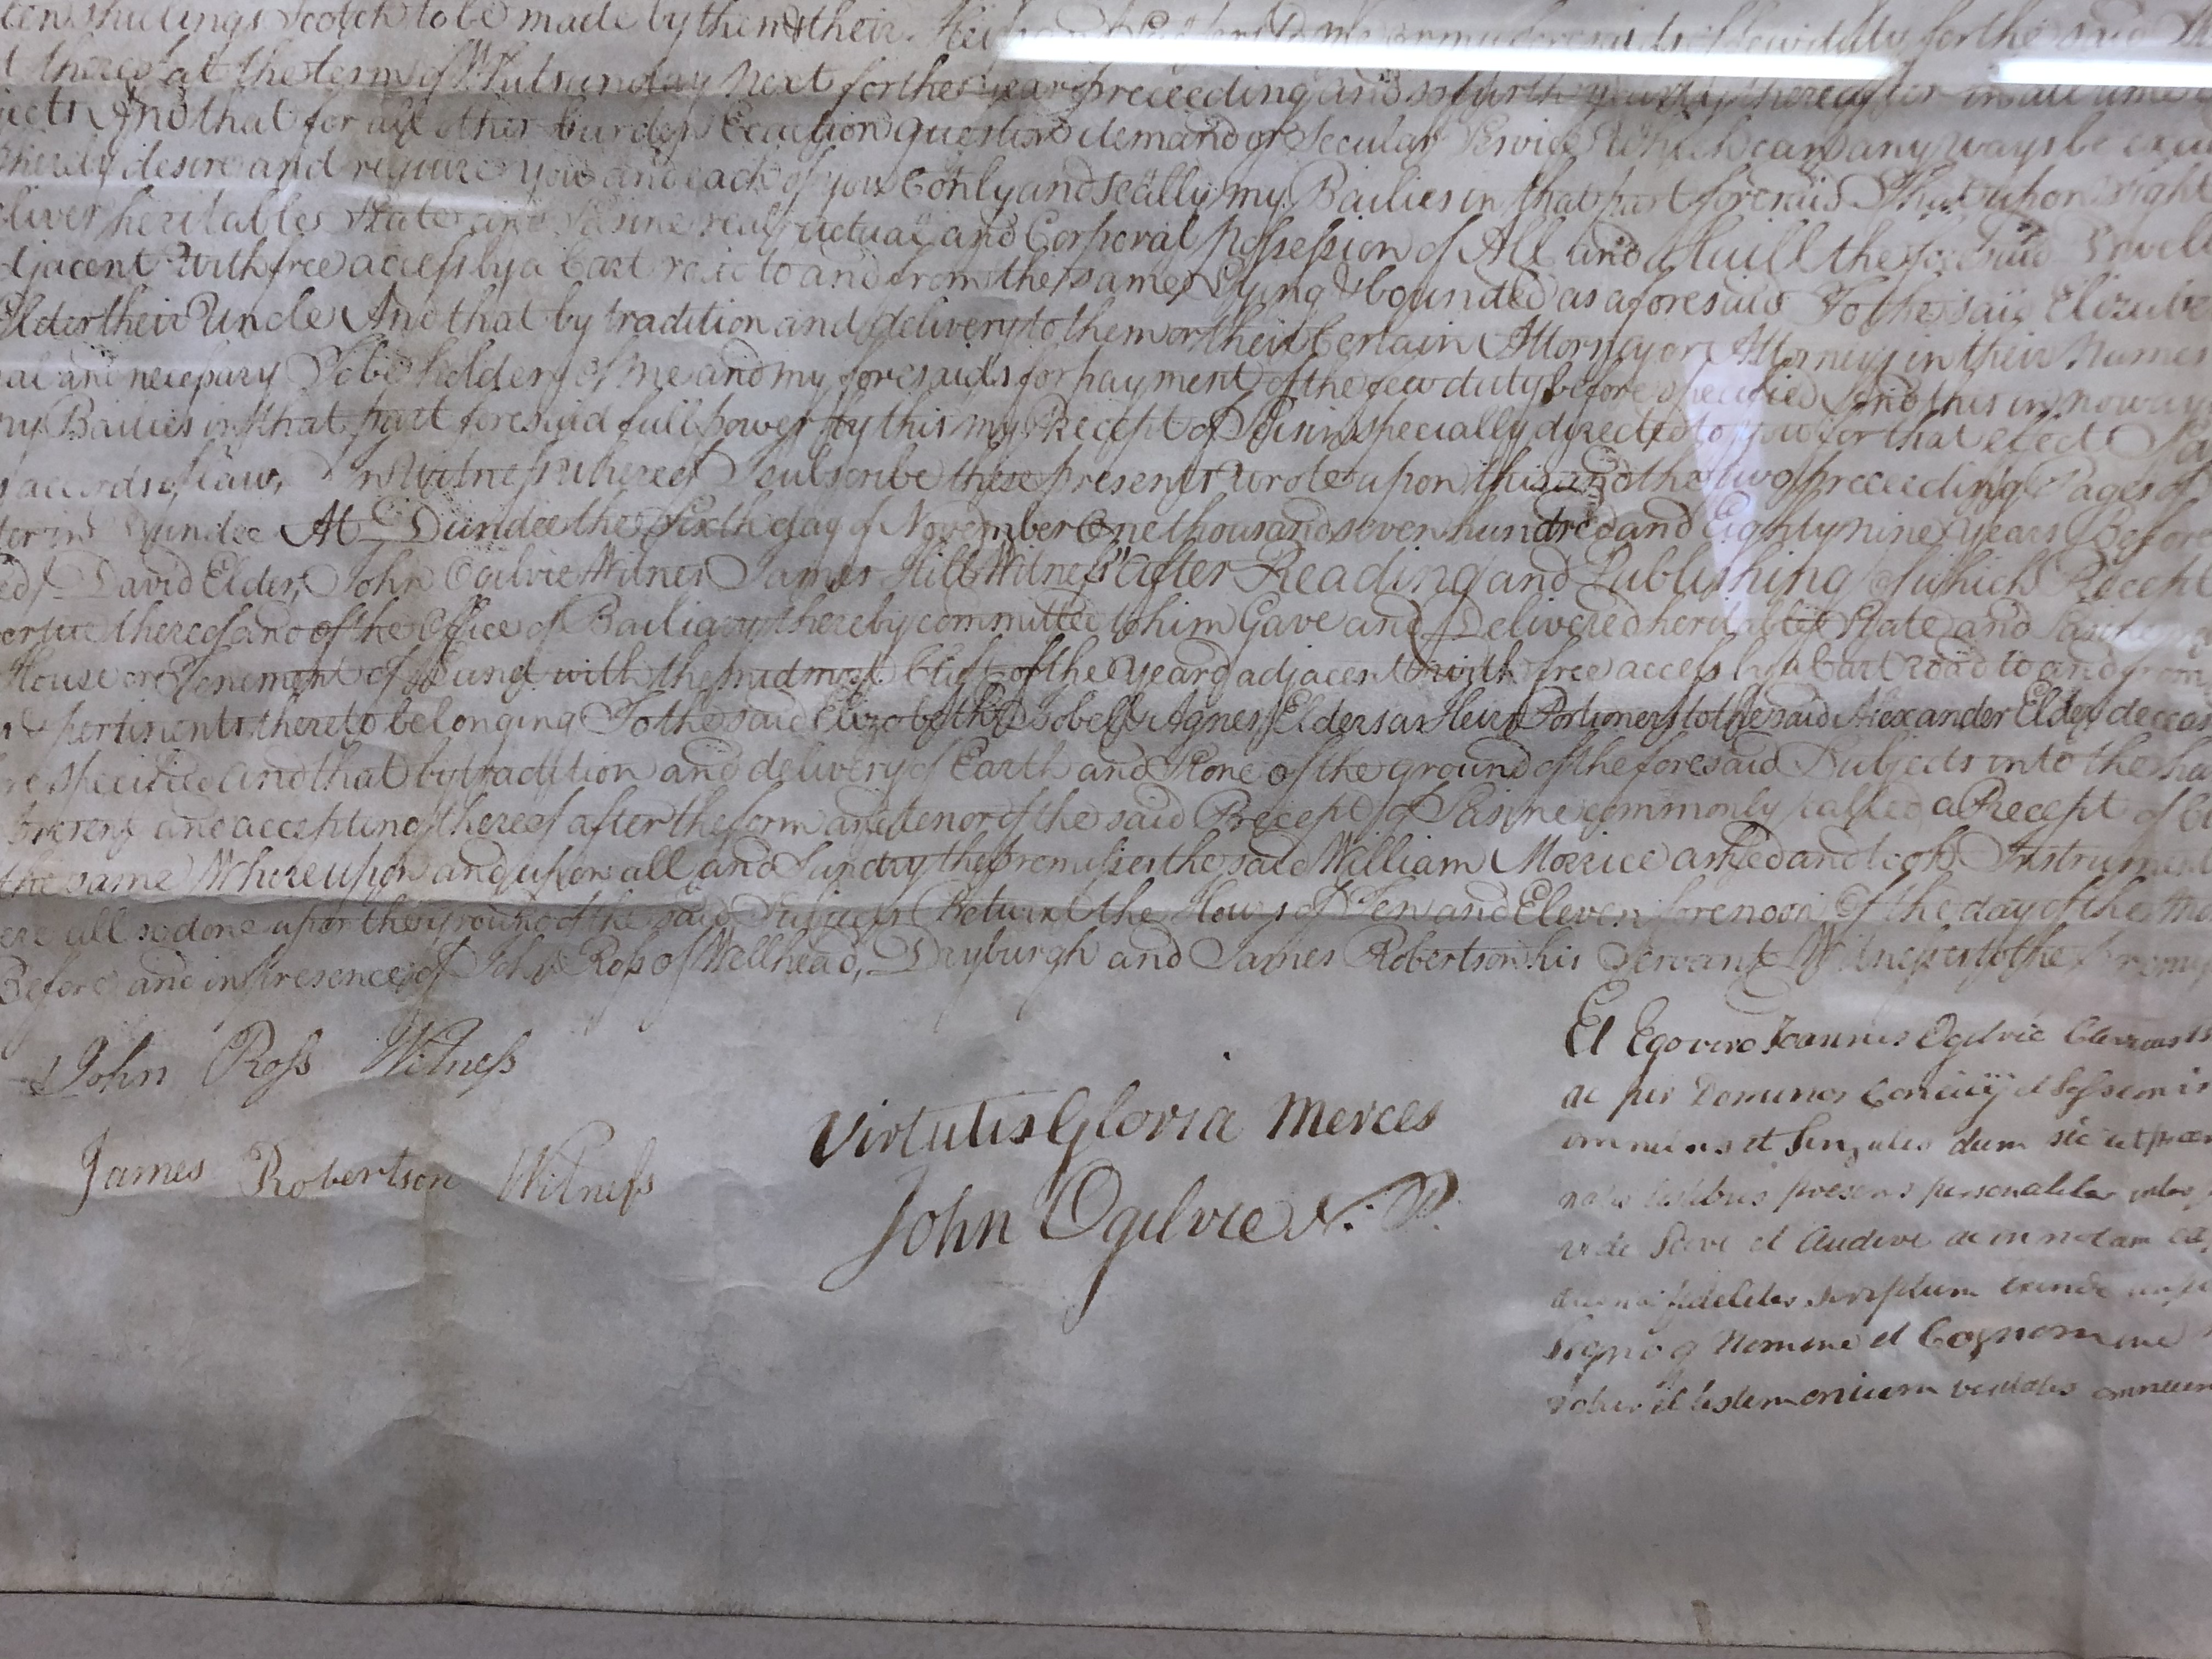 shillings Scotch to be made by them & their
thereof at the term of Whitsunday next for the year preceeding and so furth yearly thereafter in all time
And that for all other burden Exaction question demand or Secular Service Which can any ways be
hereby desire and require you and each of you Conly and Seally my Bailies in that part foresaid That upon sight
heritable State and Sasine real actual and Corporal possession of All and Haill the foresaid
adjacent With free access by a Cart road to and from the same Lying & bounded as aforesaid To the said
Elder their Uncle And that by tradition and delivery to them or their Certain Attorney or Attorneys in their Names
and necessary To be holden of me and my foresaids for payment of the few duty before specified And this in no ways
my Bailies in that part foresaid full power by this my Precept of Seisin specially directed to you for that effect
accords of Law, In Witness whereof I subscribe these presents Wrote upon this and the two preceeding Pages of
in Dundee At Dundee the Sixth day of November One thousand seven hundred and Eighty nine years Before
David Elder, John Ogilvie Witnes James Hill Witness After Reading and Publishing of which Precept
thereof and of the Office of Bailiary thereby committed to him Gave and Delivered heritable State and Sasine
House or Tenement of with the midmost of the Yeard adjacent with free access by a Cart road to and from
& pertinents thereto belonging To the said Elizabeth Isobell & Agnes Elders as Heirs Portioners to the said Alexander Elder
specified and that by tradition and delivery of Earth and Stone of the ground of the foresaid Subjects into the
present and accepting thereof after the form and tenor of the said Precept of Sasine commonly called a Precept of
the same Whereupon and upon all and Sundry the premisses the said William Morrice asked and took
all so done upon the ground of the said Subjects Betwixt the Hours of Ten and Eleven forenoon Of the day of the
Before and in presence of John Ross of Wellhead, Dryburgh and James Robertson his Servant Witnesses to the
John Ross Witness
James Robertson Witness
Virtutis Gloria Merces
John Ogilvie N. P.
Et Ego vero Joannes Ogilvie Clericus
ac per Dominos Concilij et Sessionis
omnibus et Singulis dum sic ut
testibus presens personaliter
Scivi et Audivi ac in notam
fideliter scriptum exinde
Nomine et Cognomine
et testimonium veritatis omnium